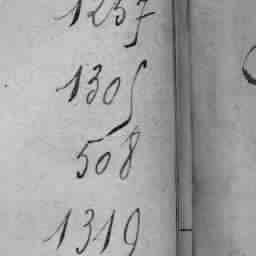 1257
1305
508
1319